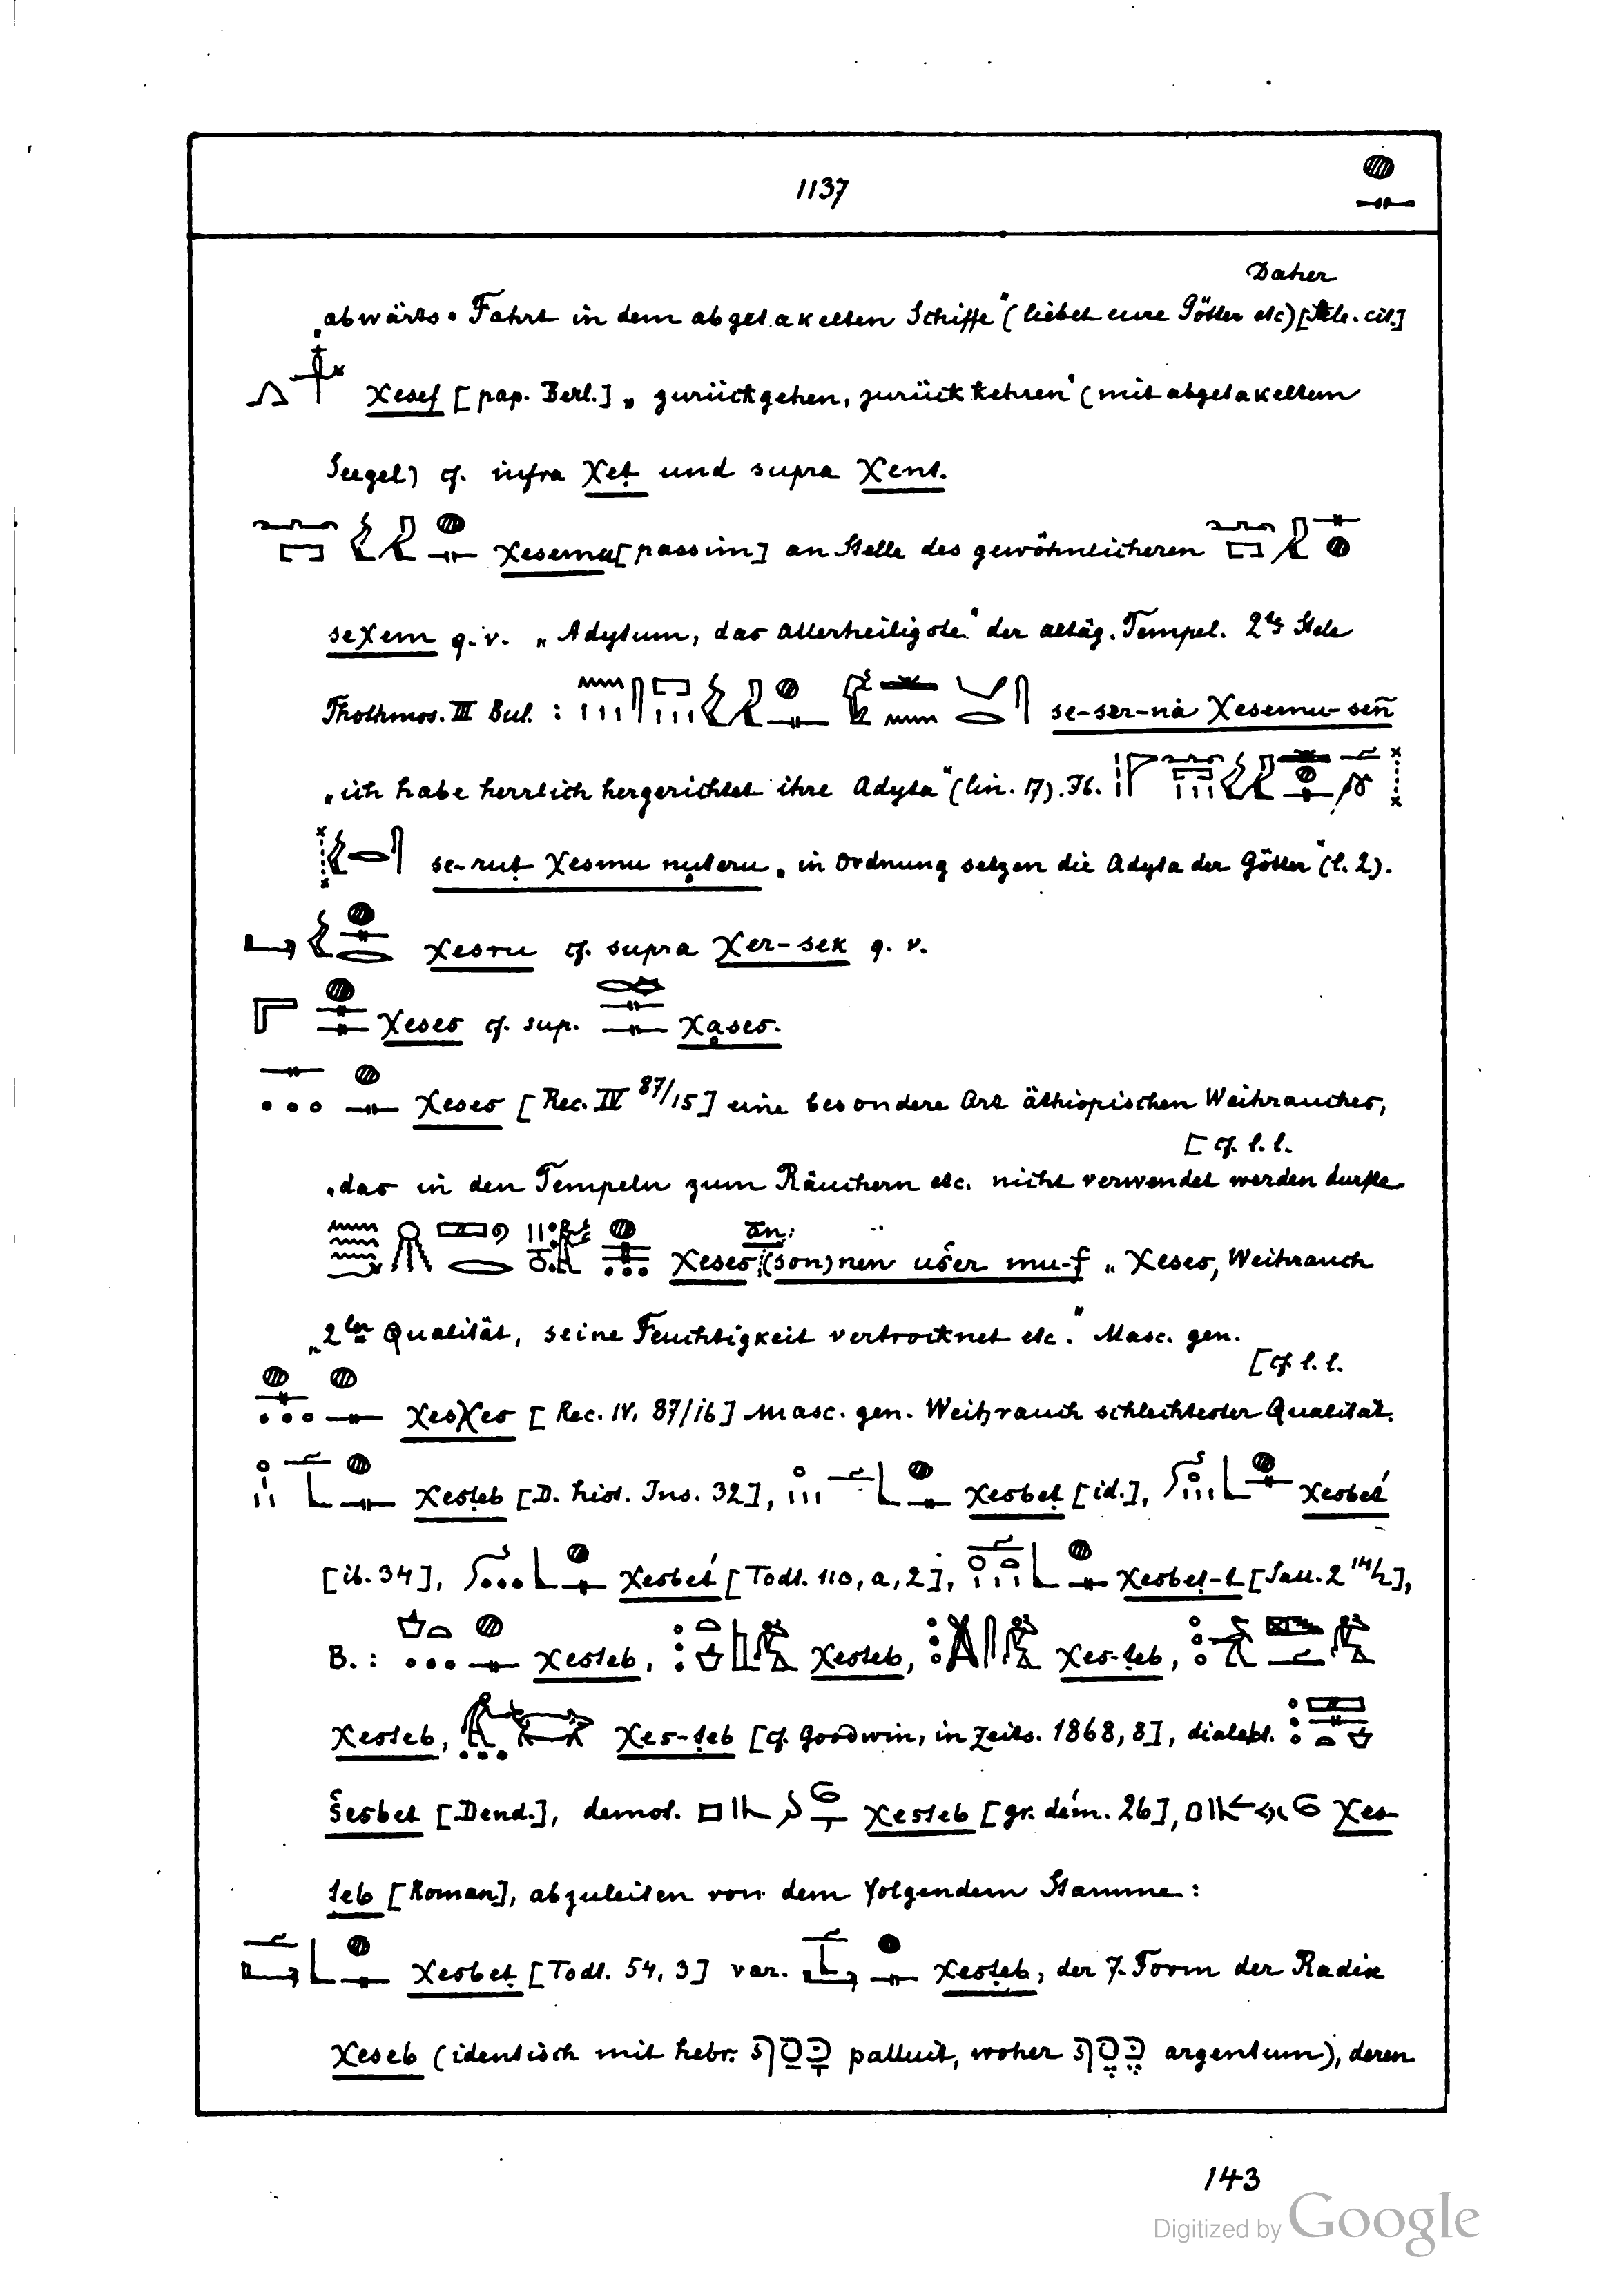 1137
Daher
„abwärts-Fahrt in dem abgetakelten Schiffe“ (liebet eure Götter etc) [Stele. cit.]
χesef [pap. Berl.] „zurückgehen, zurückkehren“ (mit abgetakeltem
Seegel) cf. infra χeṭ und supra χent.
χesemu [passim] an Stelle des gewöhnlicheren
seχem q.v. „Adytum, das allerheiligste“ der altäg. Tempel. Stele
Thothmos. III Bul. : se-ser-nȧ χesemu-sen
„ich habe herrlich hergerichtet ihre Adyta“ (lin. 17). Ib.
se-ruṭ χesmu nuteru „in Ordnung setzen die Adyta der Götter“ (l. 2).
χesru cf. supra χer-sek q. v.
χeses cf. sup. χạses.
χeses [Rec. IV 87/15] eine besondere Art äthiopischen Weihrauches,
[cf. l. l.
„das in den Tempeln zum Räuchern etc. nicht verwendet werden durfte
ān:
χeses (son)nen ušer mu-f „χeses, Weihrauch
„2ter Qualität, seine Feuchtigkeit vertrocknet etc.“ Masc. gen.
[cf. l. l.
χesχes [Rec. IV. 87/16] Masc. gen. Weihrauch schlechtester Qualität.
χesṭeb [D. hist. Ins. 32], χesbeṭ [id.], χesbet́
[ib. 34], χesbet́ [Todt. 110, a, 2], χesbeṭ-t [Sall. 2 14/2],
B. : χesteb, χesteb, χes-ṭeb,
χesteb, χes-ṭeb [cf. Goodwin, in Zeits. 1868, 8], dialekt.
šesbet [Dend.], demot. χesteb [gr. dém. 26], χes-
ṭeb [Roman], abzuleiten von dem folgendem Stamme :
χesbeṭ [Todt. 54, 3] var. χesṭeb, der 7. Form der Radix
χeseb (identisch mit hebr. כָּסַף palluit, woher כֶּסֶף argentum), deren
143
Digitized by Google